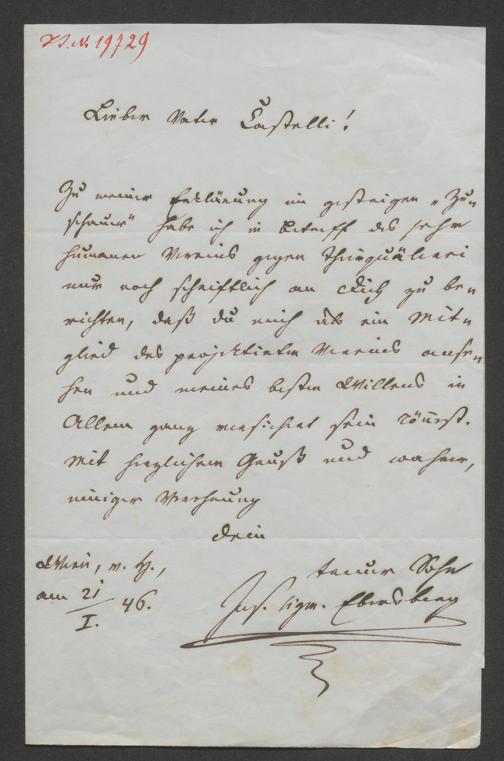 I.N. 19729
Lieber Vater Castelli!
Zu meiner Erklärung im gestrigen „Zu-
schauer“ habe ich in Betreff des sehr
humanen Vereins gegen Thierquälerei
nur noch schriftlich an Dich zu be-
richten, daß du mich als ein Mit-
glied des projektirten Vereines anse-
hen und meines besten Willens in
Allem ganz versichert sein könnst.
Mit herzlichem Gruß und wahrer,
inniger Verehrung
Dein
treuer Sohn
Jos. Sigm. Ebersberg
Wien, v. H.,
am 21/I. 46.